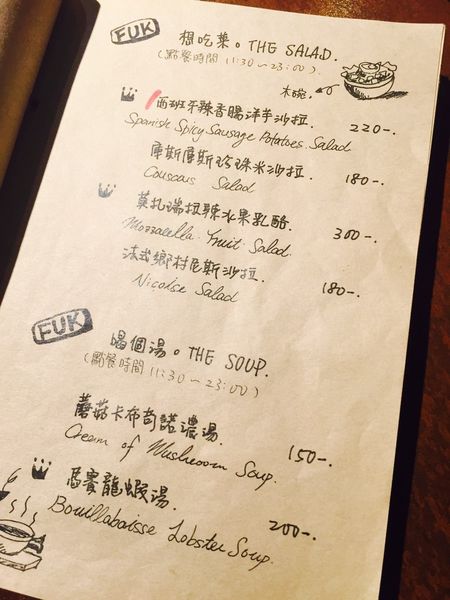 FUK
想吃菜。THE SALAD.
(點餐時間 11:30~23:00).
木碗.
西班牙辣香腸洋芋沙拉. 220-.
Spanish Spicy Sausage Potatoes Salad
庫斯庫斯珍珠米沙拉. 180-.
Couscous Salad
莫扎瑞拉辣水果乳酪. 300-.
Mozzarella Fruit Salad.
法式鄉村尼斯沙拉. 180-.
Nicoise Salad
FUK
喝個湯。THE SOUP.
(點餐時間 11:30~23:00)
蘑菇卡布奇諾濃湯. 150-.
Cream of Mushroom Soup.
馬賽龍蝦湯. 200-.
Bouillabaisse Lobster Soup.